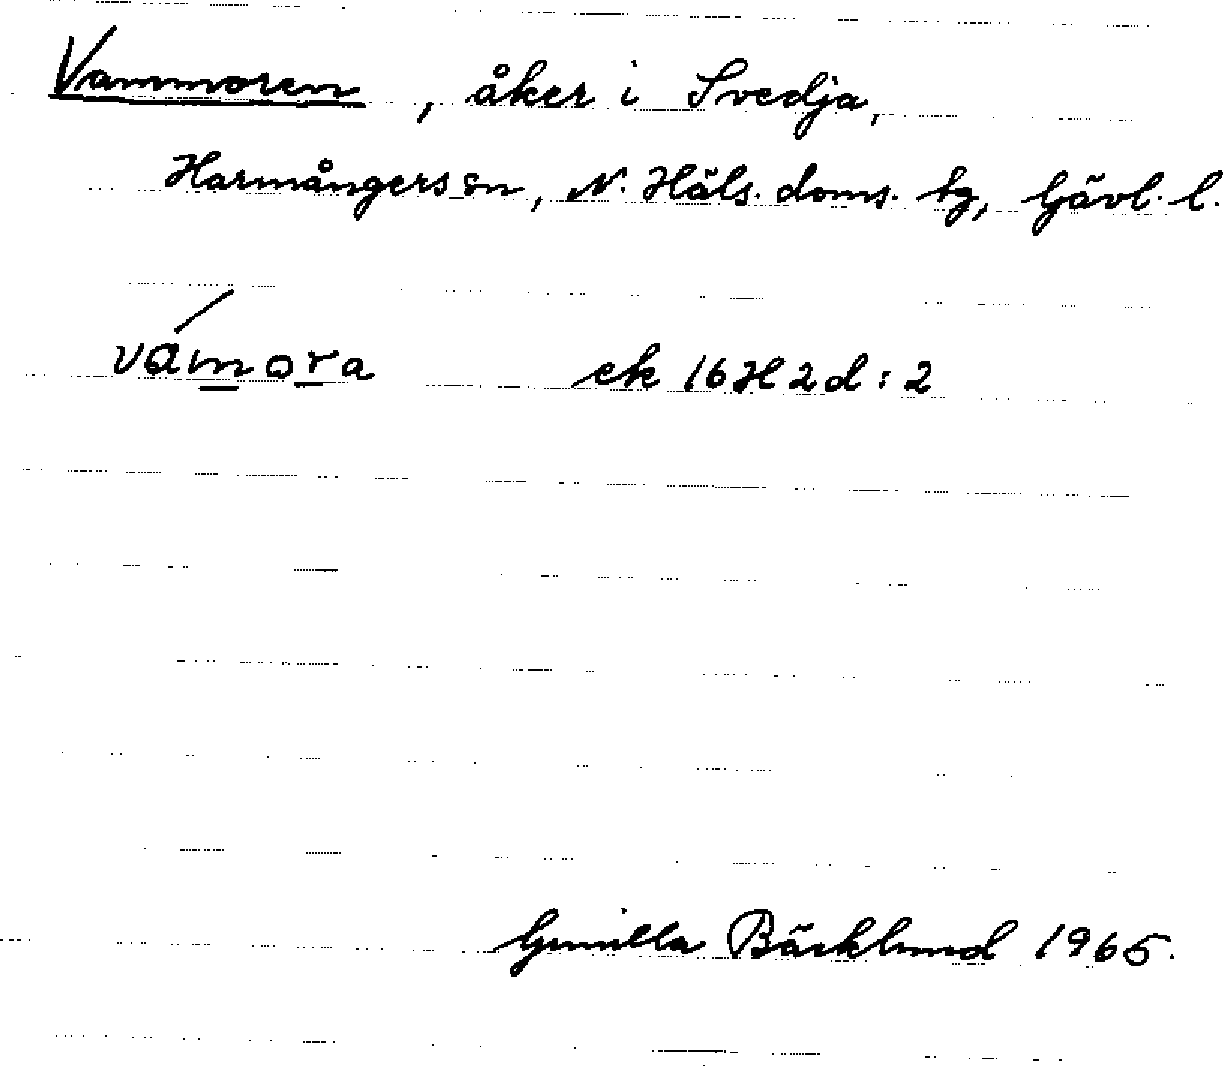 Vammoren, åker i Svedja,
Harmångers sn, N. Häls. doms. tg, Gävl. l.
vámora ek 16H2d:2
Gunilla Bäcklund 1965.